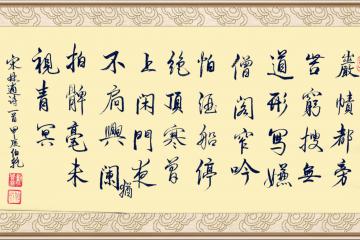 巖憤都旁
苦窮搜無
道形寫嫌
僧閣窄吟
怕酒船停
絶頂寒曾
上閑門夜
不扃興闌猶
拍髀毫末
視青冥
宋林逋诗一首甲辰伯乾